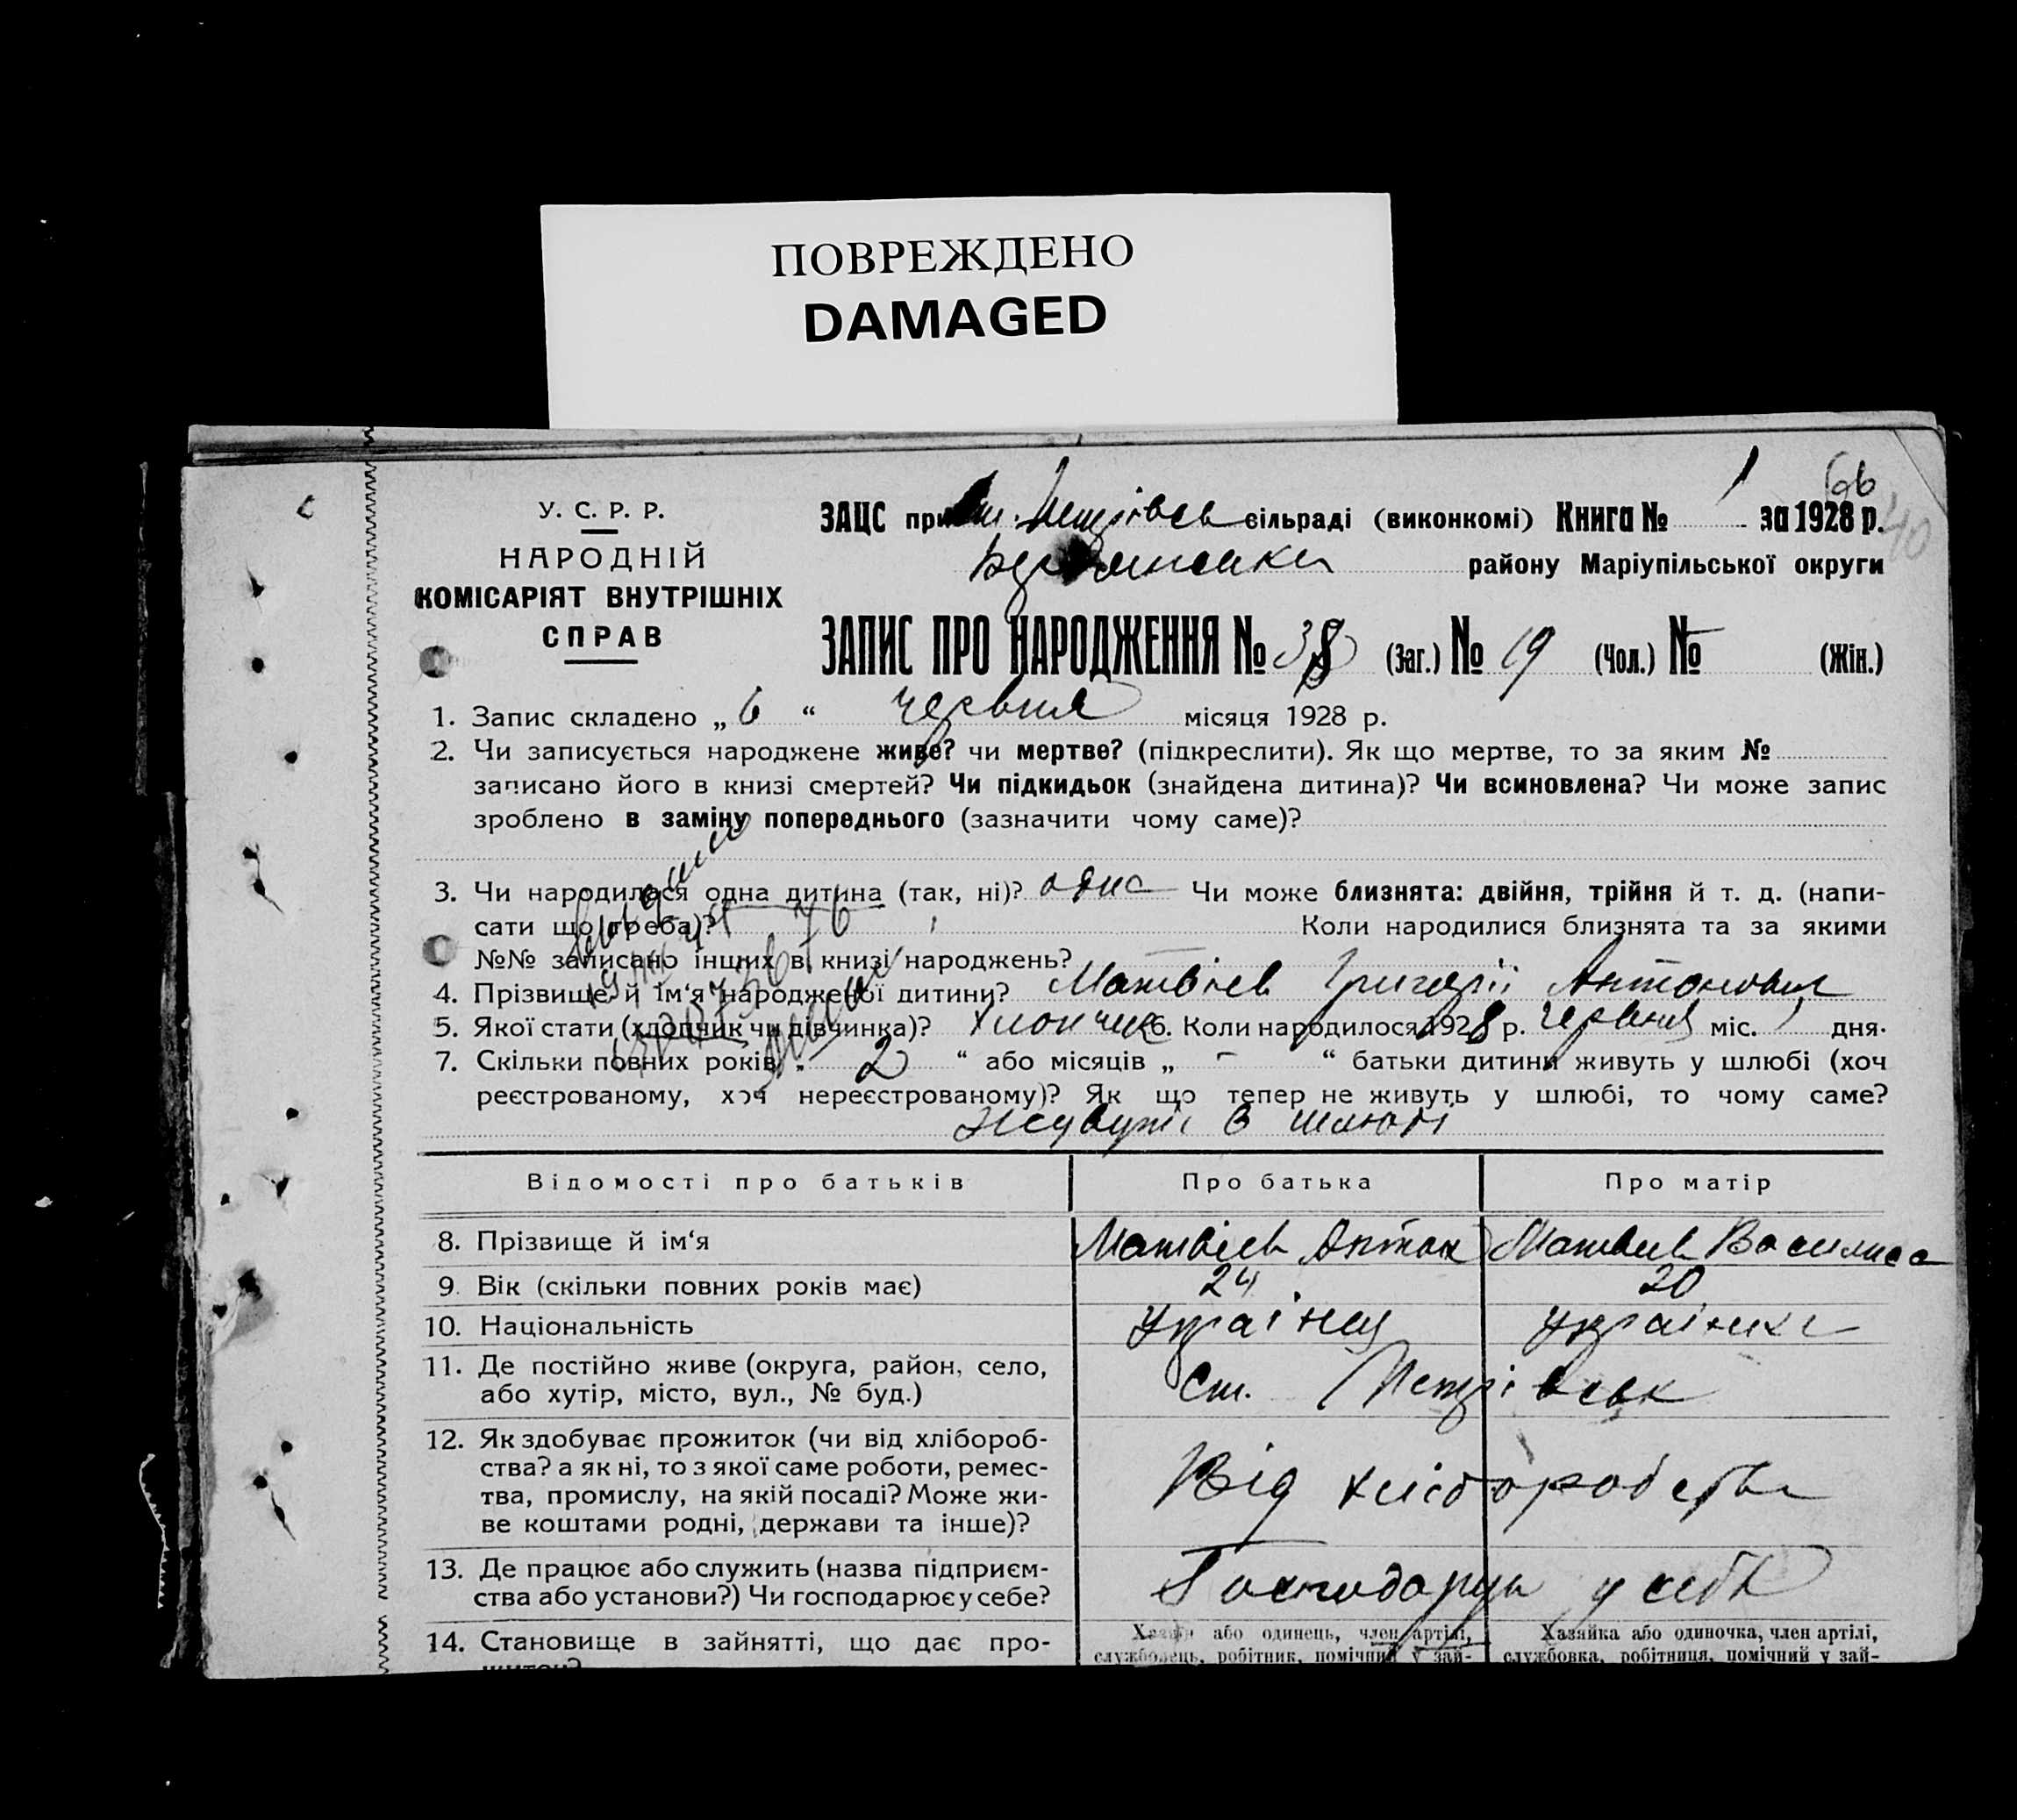 ПОВРЕЖДЕНО
DAMAGED
66
40
У. С. Р. Р.
НАРОДНІЙ
КОМІСАРІЯТ ВНУТРІШНІХ
СПРАВ
ЗАЦС при ст. Петрівськ сільраді (виконкомі) Книга № 1 за 1928 р.
району Маріупільської округи
ЗАПИС ПРО НАРОДЖЕННЯ № 38 (Заг.) № 19 (Чол.) № — (Жін.)
1. Запис складено „ 6 “ червня місяця 1928 р.
2. Чи записується народжене живе? чи мертве? (підкреслити). Як що мертве, то за яким №
записано його в книзі смертей? Чи підкидьок (знайдена дитина)? Чи всиновлена? Чи може запис
зроблено в заміну попереднього (зазначити чому саме)?
3. Чи народилася одна дитина (так, ні)? одна Чи може близнята: двійня, трійня й т. д. (напи-
сати що треба)? Коли народилися близнята та за якими
№№ записано інших в книзі народжень?
4. Прізвище й ім‘я народженої дитини? Матвієв Григорії Антонович
5. Якої стати (хлопчик чи дівчинка)? Хлопчик 6. Коли народилося 1928 р. червня міс. 1 дня.
7. Скільки повних років „ 2 “ або місяців „ - “ батьки дитини живуть у шлюбі (хоч
реєстрованому, хоч нереєстрованому)? Як що тепер не живуть у шлюбі, то чому саме?
живуть в шлюбі
Відомості про батьків Про батька Про матір
8. Прізвище й ім‘я Матвієв Антон Матвиев Василиса
9. Вік (скільки повних років має) 24 20
10. Національність Українец Українка
11. Де постійно живе (округа, район, село,
або хутір, місто, вул., № буд.) Ст. Петрівськ
12. Як здобуває прожиток (чи від хлібороб-
ства? а як ні, то з якої саме роботи, ремес-
тва, промислу, на якій посаді? Може жи-
ве коштами родні, держави та інше)? Від хліборобства
13. Де працює або служить (назва підприєм-
ства або установи?) Чи господарює у себе? Господарує у себе
14. Становище в зайнятті, що дає про-
житок?
Хазяїн або одинець, член артілі,
службовець, робітник, помічний у зай-
Хазяйка або одиночка, член артілі,
службовка, робітниця, помічний у зай-